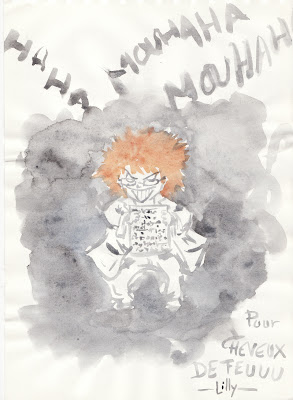 HAHA
MOUHAHA
MOUHAH
Pour
CHEVEUX
DE FEUUU
Lilly